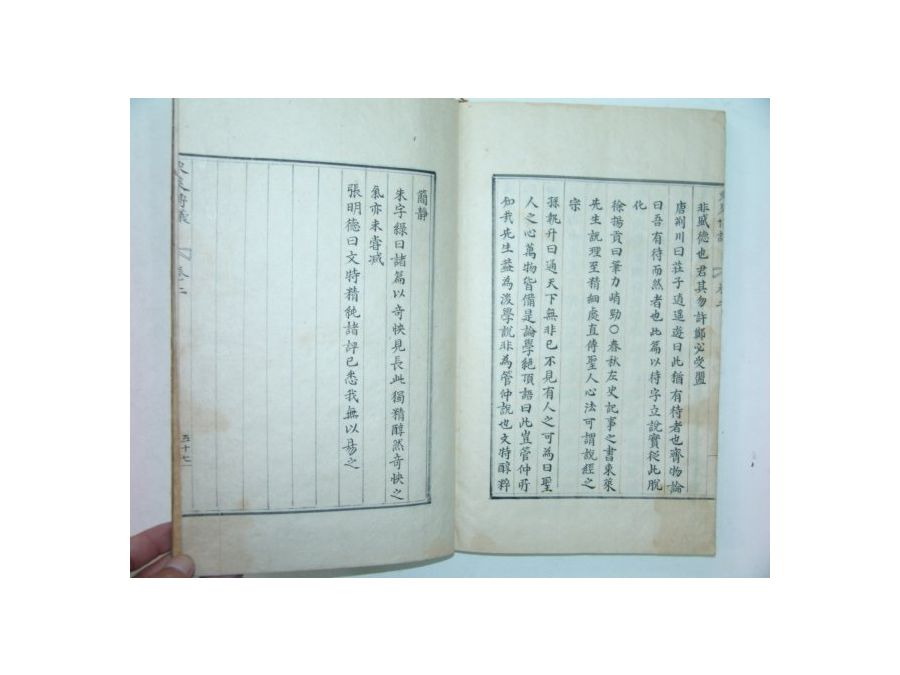 非盛德也君其勿許鄭必受盟
唐荊川曰莊子逍遥遊曰此猶有待者也齊物論
曰吾有待而然者也此篇以待字立説實從此脫
化
徐揚貢曰筆力峭勁〇春秋左史記事之書東萊
先生説理至精細處直傳聖人心法可謂説經之
宗
孫執升曰通天下無非已不見有人之可為曰聖
人之心萬物皆備是論學絕頂語曰此豈管仲所
知我先生葢為後學説非為管仲説也文特醇粹
簡静
朱字綠曰諸篇以奇快見長此獨精醇然奇快之
氣亦未嘗减
張明德曰文特精純諸評已悉我無以易之
東萊博議 卷二
五十七